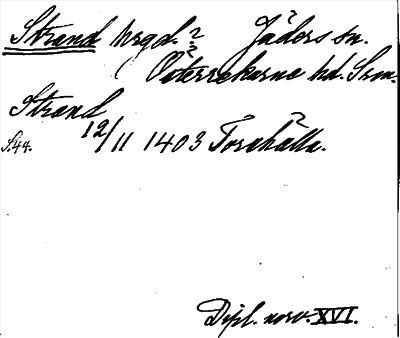 Strand hrgd.? Jäders sn.
(Österrekarne hd. Srm.
Strand
S.44. 12/11 1403 Torshälla.
Dipl. norv. XVI.